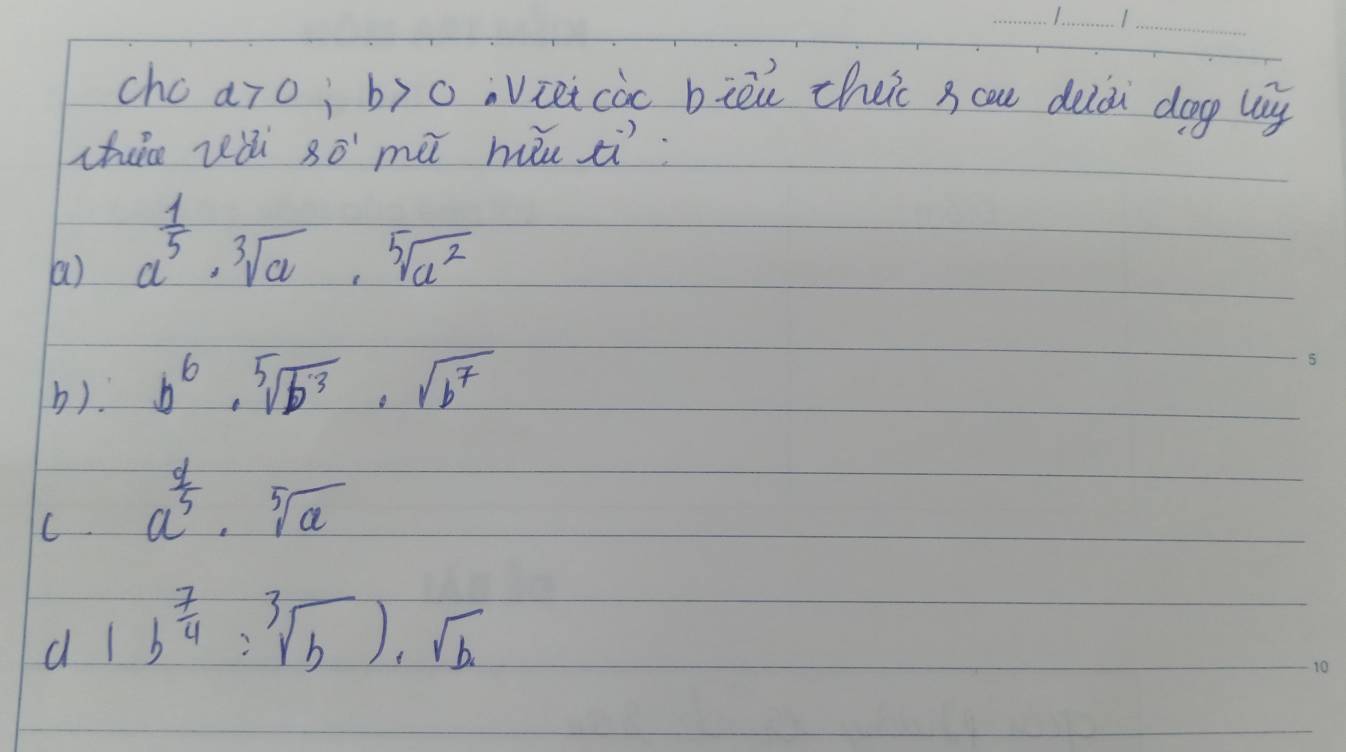 ...../...../..........
cho a>0; b>0. Viết các biểu thức sau dưới dạg lũy
thừa với số mũ hữu tỉ:
a) a^{\frac{1}{5}} . \sqrt[3]{a} . \sqrt[5]{a^2}
b). b^6 . \sqrt[5]{b^3} . \sqrt{b^7}
5
c. a^{\frac{}{5}} . \sqrt[5]{a}
d ( b^{\frac{7}{4}} : \sqrt[3]{b} ) . \sqrt{b}.
10